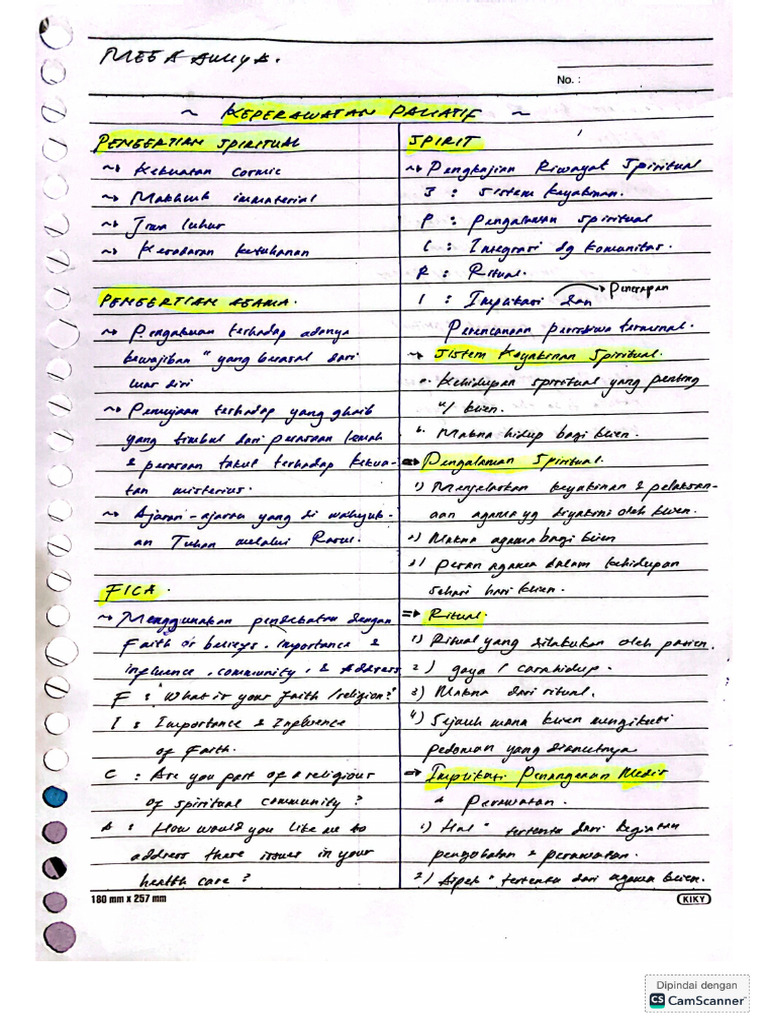 MEGA AULIYA.
No. :
~ KEPERAWATAN PALIATIF ~
PENGERTIAN SPIRITUAL
~> Kekuatan cosmic
~> Makhluk immaterial
~> Jiwa luhur
~> Kesadaran ketuhanan
PENGERTIAN AGAMA.
~> Pengakuan terhadap adanya
kewajiban" yang berasal dari
luar diri
~> Pemujaan terhadap yang ghaib
yang timbul dari perasaan lemah
& perasaan takut terhadap kekua-
tan misterius.
~> Ajaran-ajaran yang di wahyuk-
an Tuhan melalui Rasul.
FICA.
~> Menggunakan pendekatan dengan
Faith or believs, importance &
influence, community, & Address
F : "What is your faith/religion?
I : Importance & Influence
of Faith.
C : Are you part of a religious
of spiritual community?
A : How would you like me to
address these issues in your
health care?
SPIRIT
~> Pengkajian Riwayat Spiritual
S : Sistem keyakinan.
P : Pengalaman spiritual
I : Integrasi dg komunitas.
R : Ritual.
I : Implikasi dan → Penerapan
Perencanaan peristiwa terminal.
~> Sistem Keyakinan Spiritual.
a. Kehidupan spiritual yang penting
u/ klien.
b. Makna hidup bagi klien.
=> Pengalaman Spiritual.
1) Menjelaskan keyakinan & pelaksan-
aan agama yg diyakini oleh klien.
2) Makna agama bagi klien
2) Peran agama dalam kehidupan
sehari hari klien.
=> Ritual.
1) Ritual yang dilakukan oleh pasien.
2) gaya / cara hidup.
3) Makna dari ritual.
4) Sejauh mana klien mengikuti
pedoman yang dianutnya
=> Implikasi Penanganan Medis
& Perawatan.
1) Hal" tertentu dari kegiatan
pengobatan & perawatan.
2) Aspek" tertentu dari agama klien.
180 mm x 257 mm
KIKY
Dipindai dengan
CS CamScanner